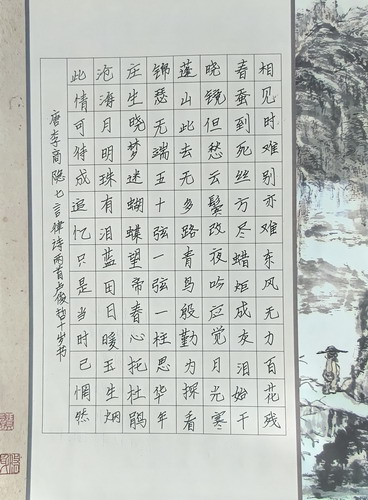 相见时难别亦难东风无力百花残
春蚕到死丝方尽蜡炬成灰泪始干
晓镜但愁云鬓改夜吟应觉月光寒
蓬山此去无多路青鸟殷勤为探看
锦瑟无端五十弦一弦一柱思华年
庄生晓梦迷蝴蝶望帝春心托杜鹃
沧海月明珠有泪蓝田日暖玉生烟
此情可待成追忆只是当时已惘然
唐李商隐七言律诗两首 十岁书